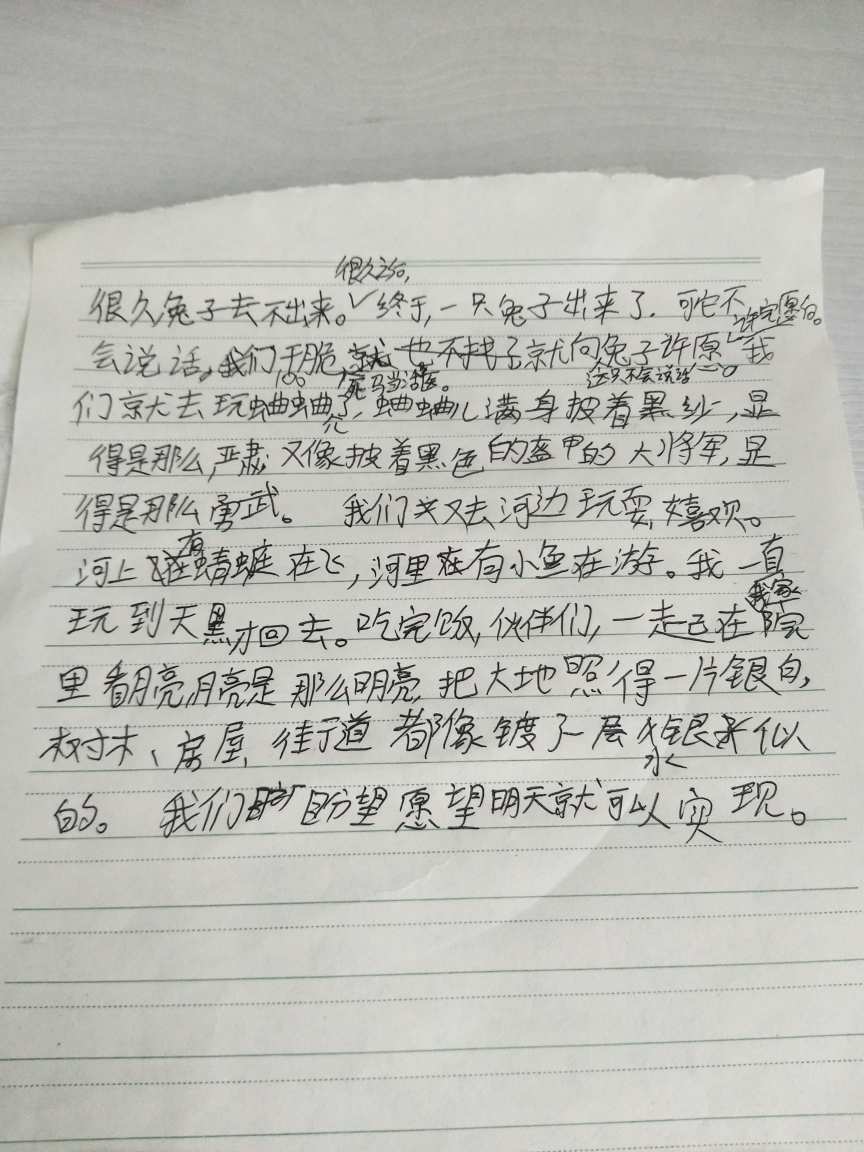 很久之后,
很久兔子去不出来。终于,一只兔子出来了.可它不
许完愿后。
会说话,我们干脆就也不找了就向兔子许愿 我
死马当活医。
这只不会说话
们就去玩蛐蛐了,蛐蛐儿满身披着黑纱,显
得是那么严肃 又像披着黑色的盔甲的大将军,显
得是那么勇武。 我们又去河边玩耍,嬉欢。
有
河上 蜻蜓在飞,河里 有小鱼在游。我一直
玩到天黑才回去。吃完饭,伙伴们,一起已在院
我家
里看月亮,月亮是那么明亮,把大地照得一片银白,
树木、房屋、街道都像镀了一层水银似
的。 我们 盼望愿望明天就可以实现。